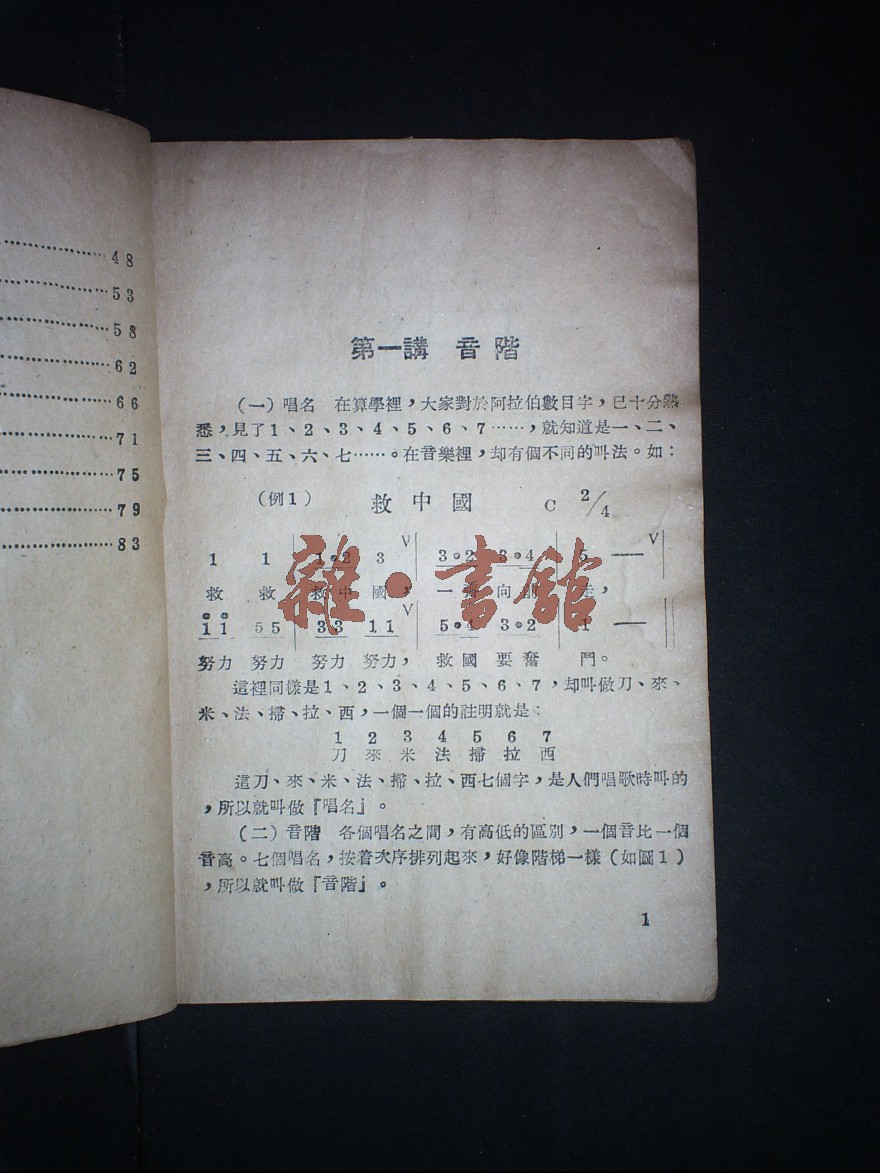 48
53
58
62
66
71
75
79
83
第一講 音階
(一)唱名 在算學裡，大家對於阿拉伯數目字，已十分熟
悉，見了1、2、3、4、5、6、7……，就知道是一、二、
三、四、五、六、七……。在音樂裡，却有個不同的叫法。如：
(例1) 救中國 C 2/4
1 1 | 1·2 3 V | 3·2 3·4 | 5 — V |
救 救 救中 國， 一齊 向前 走，
1 1 5 5 | 3 3 1 1 V | 5·4 3·2 | 1 — ||
努力 努力 努力 努力， 救國 要奮 鬥。
這裡同樣是1、2、3、4、5、6、7，却叫做刀、來、
米、法、掃、拉、西，一個一個的註明就是：
1 2 3 4 5 6 7
刀 來 米 法 掃 拉 西
這刀、來、米、法、掃、拉、西七個字，是人們唱歌時叫的
，所以就叫做『唱名』。
(二)音階 各個唱名之間，有高低的區別，一個音比一個
音高。七個唱名，按着次序排列起來，好像階梯一樣(如圖1)
，所以就叫做『音階』。
1
雜·書館